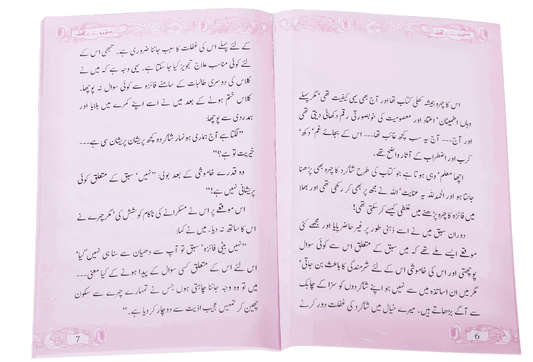 اس کا چہرہ ہمیشہ کھلی کتاب تھا اور آج بھی یہی کیفیت تھی، مگر پہلے
وہاں اطمینان، اعتماد اور معصومیت کی خوبصورتی رقم دکھائی دیتی تھی
اور آج --- آج یہ سب کچھ غائب تھا --- اس کے بجائے غم، دکھ،
کرب اور اضطراب کے آثار واضح تھے۔
اچھا معلم، وہی ہوتا ہے جو کتاب کی طرح شاگرد کا چہرہ بھی پڑھنا
جانتا ہو اور الحمد للہ یہ عنایت، اللہ نے مجھ پر بھی کر رکھی تھی اور بھلا
میں فائزہ کا چہرہ پڑھنے میں غلطی کیسے کر سکتی تھی!
دوران سبق میں نے اسے ذہنی طور پر غیر حاضر پایا اور مجھے کئی
موقعے ایسے ملے تھے کہ میں سبق کے متعلق اس سے کوئی سوال
پوچھتی اور اس کی خاموشی اس کے لئے شرمندگی کا باعث بن جاتی،
مگر میں ان اساتذہ میں سے نہیں جو اپنے شاگردوں کو سزا کے چابک
سے آگے بڑھاتے ہیں۔ میرے خیال میں شاگرد کی غفلت دور کرنے
6
کے لئے پہلے اس کی غفلت کا سبب جاننا ضروری ہے۔ تبھی اس کے
لئے کوئی مناسب علاج تجویز کیا جا سکتا ہے۔ یہی وجہ ہے کہ میں نے
کلاس کی دوسری طالبات کے سامنے فائزہ سے کوئی سوال نہ پوچھا۔
کلاس ختم ہونے کے بعد میں نے اسے اپنے کمرے میں بلایا اور
ہمدردی سے پوچھا:
"لگتا ہے آج ہماری ہونہار شاگردہ کچھ پریشان پریشان سی ہے ---
خیریت تو ہے؟"
وہ قدرے خاموشی کے بعد بولی "نہیں، سبق کے متعلق کوئی
پریشانی نہیں ہے!"
اس موقعے پر اس نے مسکرانے کی ناکام کوشش کی، مگر چہرے نے
اس کا ساتھ نہ دیا۔ میں نے کہا:
"نہیں بیٹی فائزہ، سبق تو آپ سے دھیان سے سنا ہی نہیں گیا،
اس لئے اس کے متعلق کسی سوال کے پیدا ہونے کے کیا معنی ---
میں تو وہ وجہ جاننا چاہتی ہوں جس نے تمہارے چہرے سے سکون
چھین کر تمہیں عجیب اذیت سے دوچار کر دیا ہے۔"
7